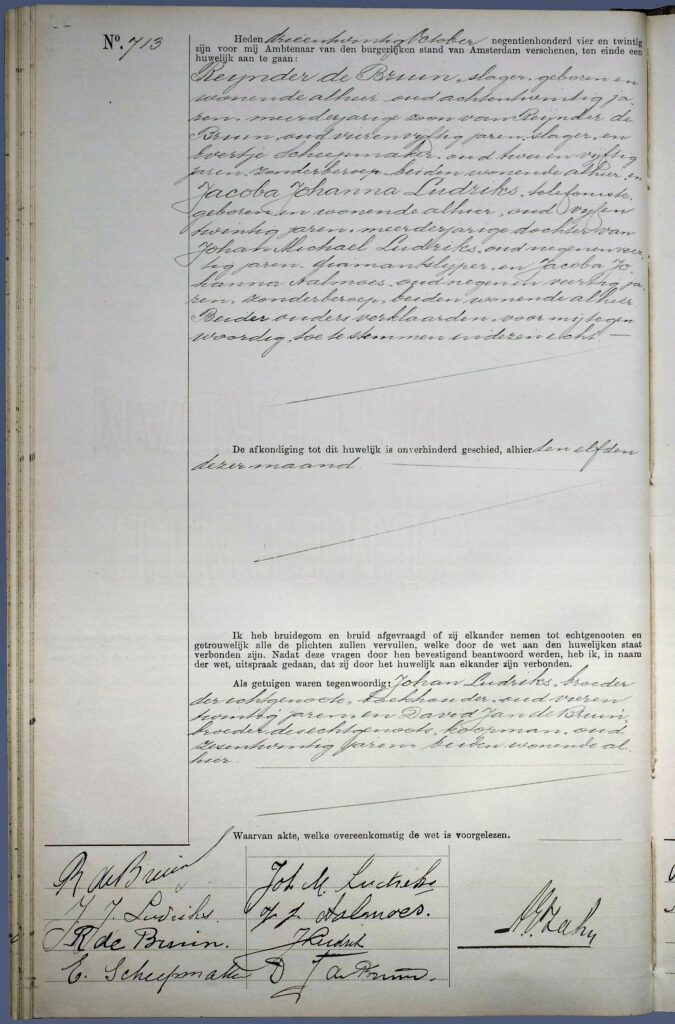 Nº. 713
Heden drieentwintig October negentienhonderd vier en twintig
zijn voor mij Ambtenaar van den burgerlijken stand van Amsterdam verschenen, ten einde een
huwelijk aan te gaan:
Reijnder de Bruin, slager, geboren en
wonende alhier, oud achtentwintig ja-
ren, meerderjarige zoon van Reijnder de
Bruin, oud vierenvijftig jaren, slager, en
Evertje Scheepmaker, oud twee en vijftig
jaren, zonder beroep, beiden wonende alhier, en
Jacoba Johanna Ludriks, telefoniste,
geboren en wonende alhier, oud vijfen
twintig jaren, meerderjarige dochter van
Johan Michael Ludriks, oud negenenveer
tig jaren, diamantslijper, en Jacoba Jo-
hanna Aalmoes, oud negen en veertig ja-
ren, zonder beroep, beiden wonende alhier
Beider ouders verklaarden, voor mij tegen
woordig, toe te stemmen in dezen echt —
De afkondiging tot dit huwelijk is onverhinderd geschied, alhier den elfden
dezer maand.
Ik heb bruidegom en bruid afgevraagd of zij elkander nemen tot echtgenooten en
getrouwelijk alle de plichten zullen vervullen, welke door de wet aan den huwelijken staat
verbonden zijn. Nadat deze vragen door hen bevestigend beantwoord werden, heb ik, in naam
der wet, uitspraak gedaan, dat zij door het huwelijk aan elkander zijn verbonden.
Als getuigen waren tegenwoordig: Johan Ludriks, broeder
der echtgenoote, boekhouder, oud vieren
twintig jaren, en David Jan de Bruin,
broeder des echtgenoots, koopman, oud
zesentwintig jaren, beiden wonende al
hier.
Waarvan akte, welke overeenkomstig de wet is voorgelezen.
R de Bruin
J. J. Ludriks.
R de Bruin.
E. Scheepmaker
Joh M. Ludriks
J. J. Aalmoes.
J Ludriks
D J de Bruin.